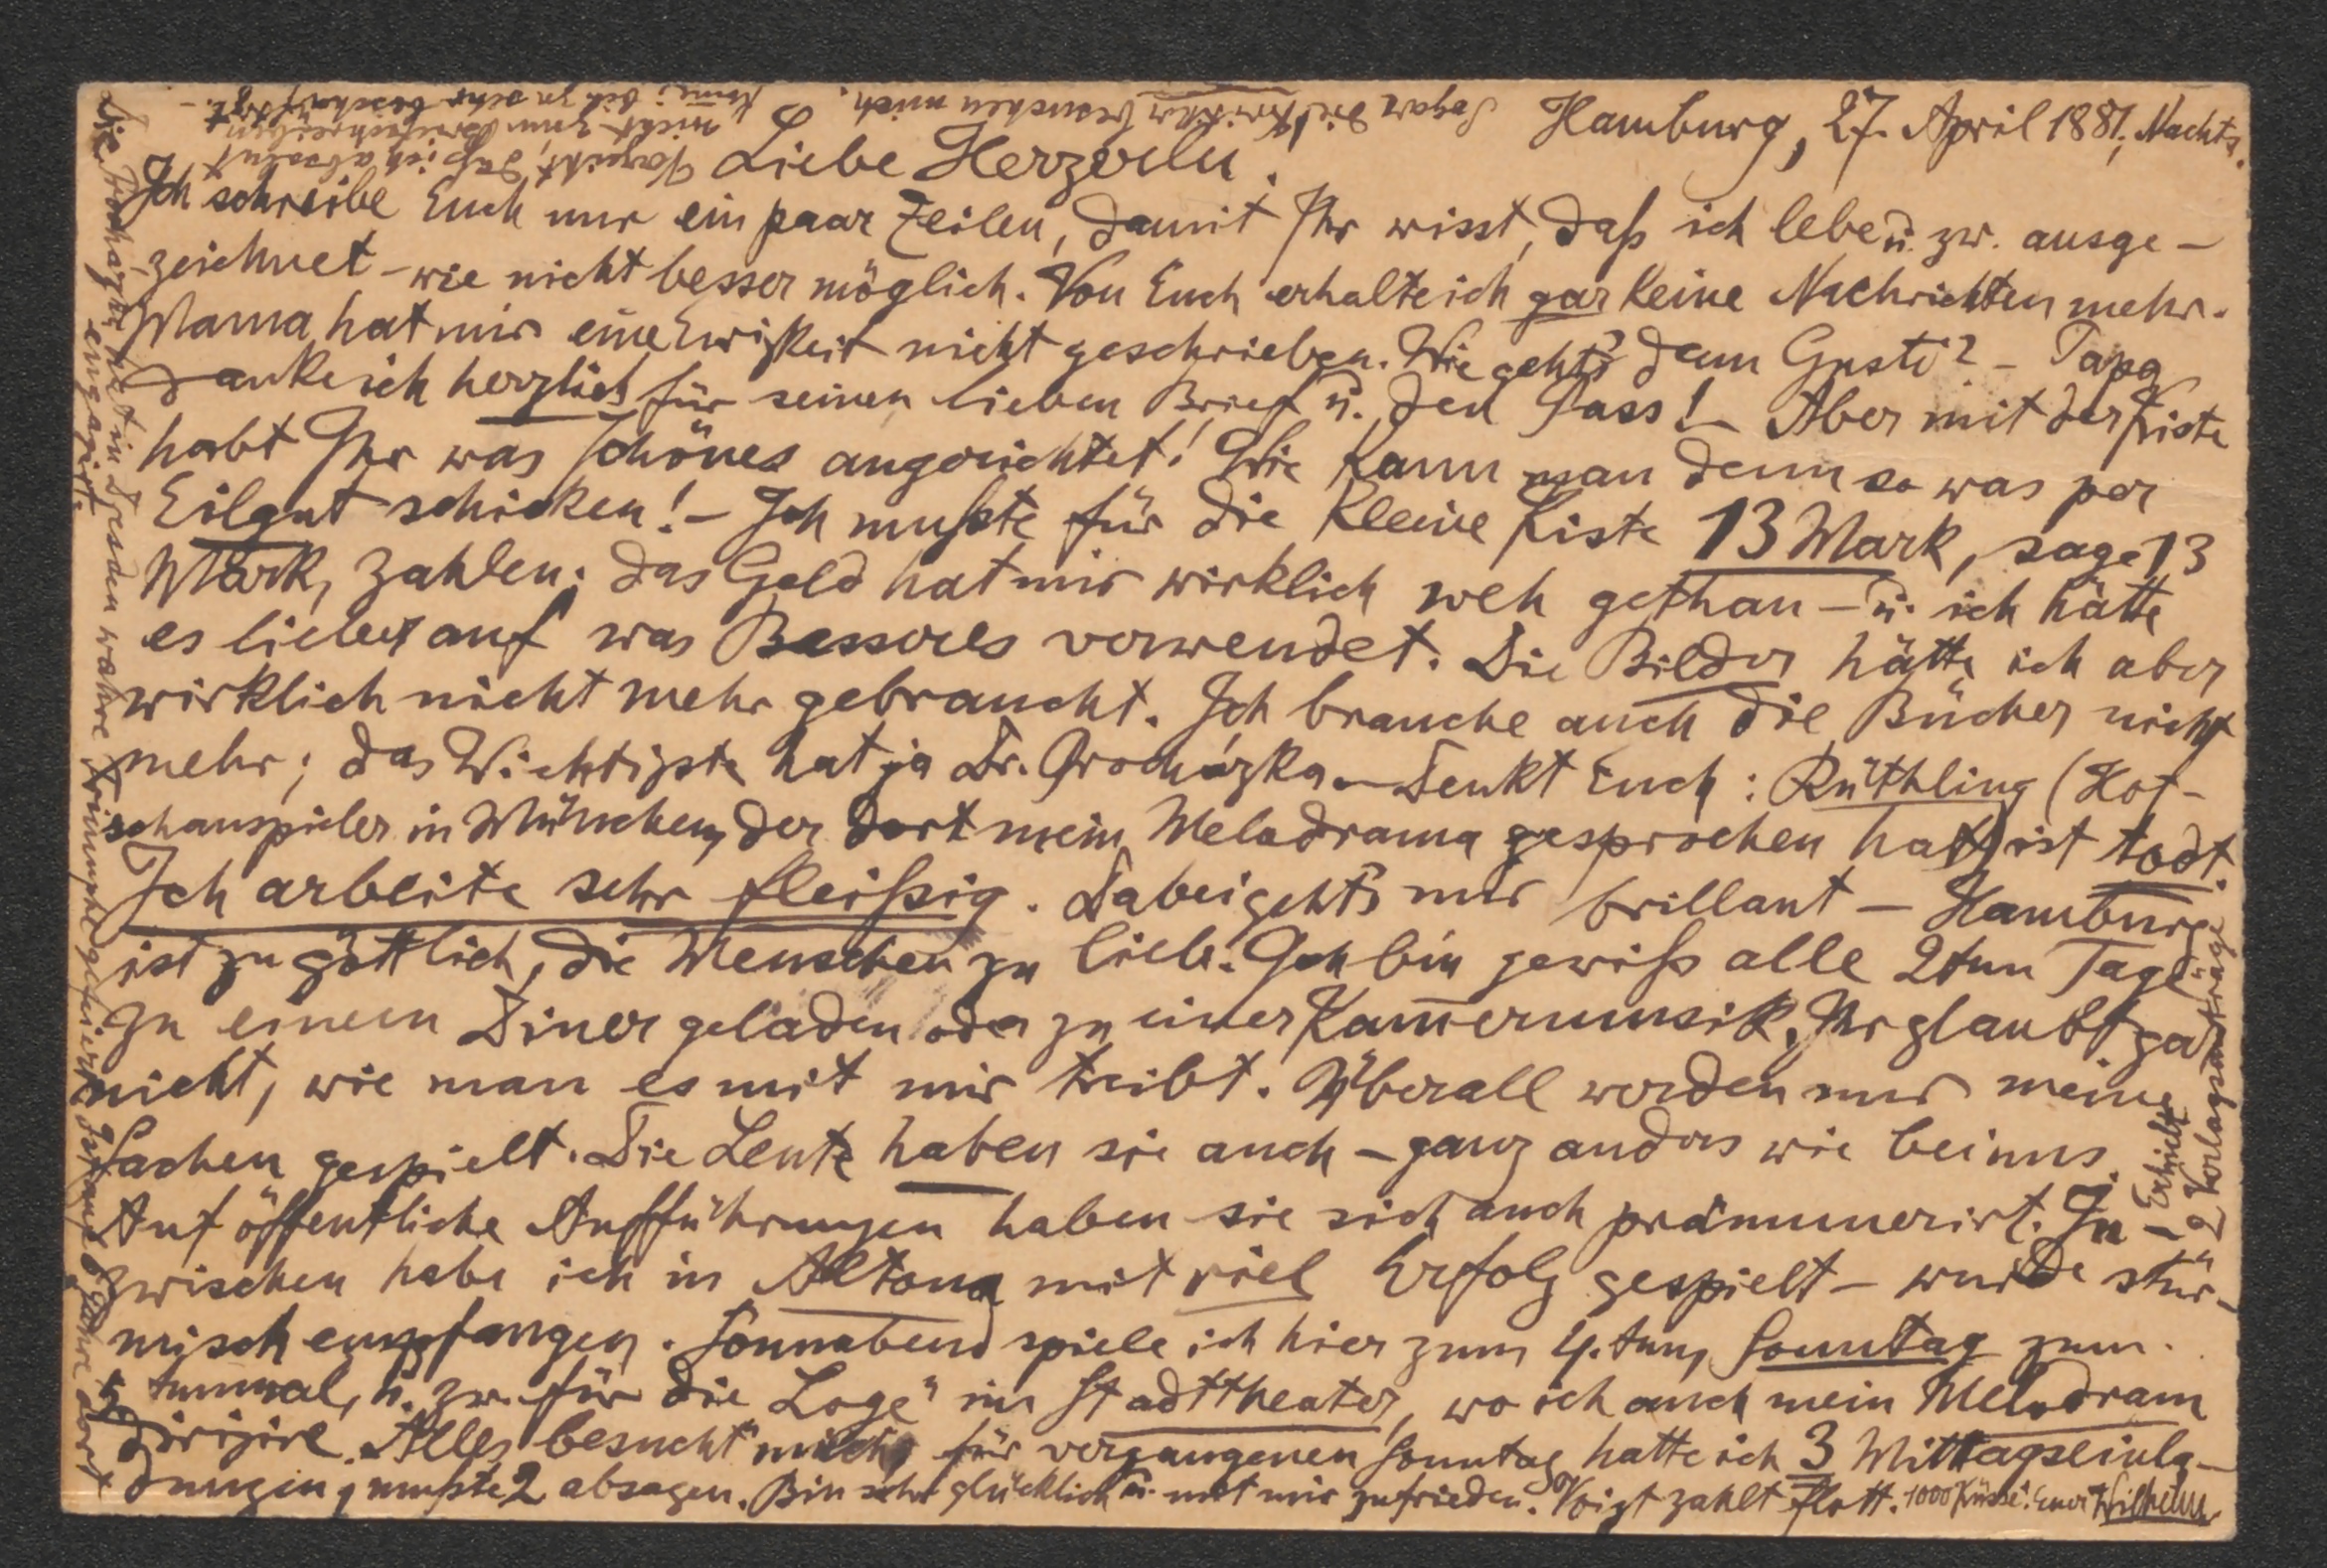 Hamburg, 27. April 1881, Nachts.
Liebe Herzerln!
Ich schreibe Euch nur ein paar Zeilen, damit Ihr wisst, daß ich lebe u. zw. ausge-
zeichnet - wie nicht besser möglich. Von Euch erhalte ich gar keine Nachrichten mehr.
Mama hat mir eine Ewigkeit nicht geschrieben. Wie geht's denn Gusti? - Papa
danke ich herzlich für seinen lieben Brief u. den Pass! - Aber mit der Kiste
habt Ihr was schönes angerichtet! Wie kann man denn so was per
Eilgut schicken! - Ich mußte für die kleine Kiste 13 Mark, sage 13
Mark, zahlen; das Geld hat mir wirklich weh gethan - u. ich hätte
es lieber auf was Besseres verwendet. Die Bilder hätte ich aber
wirklich nicht mehr gebraucht. Ich brauche auch die Bücher nicht
mehr; das Wichtigste hat ja Dr. Procházka. - Denkt Euch: Rüthling (Hof-
schauspieler in München, der dort mein Melodrama gesprochen hat) ist todt.
Ich arbeite sehr fleißig. Dabei geht's mir brillant - Hamburg
ist zu göttlich, die Menschen zu lieb. Ich bin gewiß alle 2ten Tage
zu einem Diner geladen oder zu einer Kam̅ermusik. Ihr glaubt gar
nicht, wie man es mit mir treibt. Überall werden nur meine
Sachen gespielt. Die Leute haben sie auch - ganz anders wie bei uns.
Auf öffentliche Aufführungen haben sie sich auch pränumerirt. In-
zwischen habe ich in Altona mit viel Erfolg gespielt - wurde stür-
misch empfangen. Sonnabend spiele ich hier zum 4. ten, Sonntag zum
5. tenmal, u. zw. für die "Loge" im Stadttheater, wo ich auch mein Melodram
dirigire. Alles besucht mich, für vergangenen Sonntag hatte ich 3 Mittagseinla-
dungen, mußte 2 absagen. Bin sehr glücklich u. mit mir zufrieden. Voigt zahlt flott. 1000 Küsse! Euer Wilhelm
- Erhielt
2 Verlagsanträge
Die Procházka hat in Dresden wahre Triumphe gefeiert u. ist auf 6 Jahre dort
engagirt.
Sogar die Kritiker besuchen mich.
Verzeiht, daß ich absolut
nicht zum Briefschreiben
kom̅e; bin zu sehr beschäftigt. -